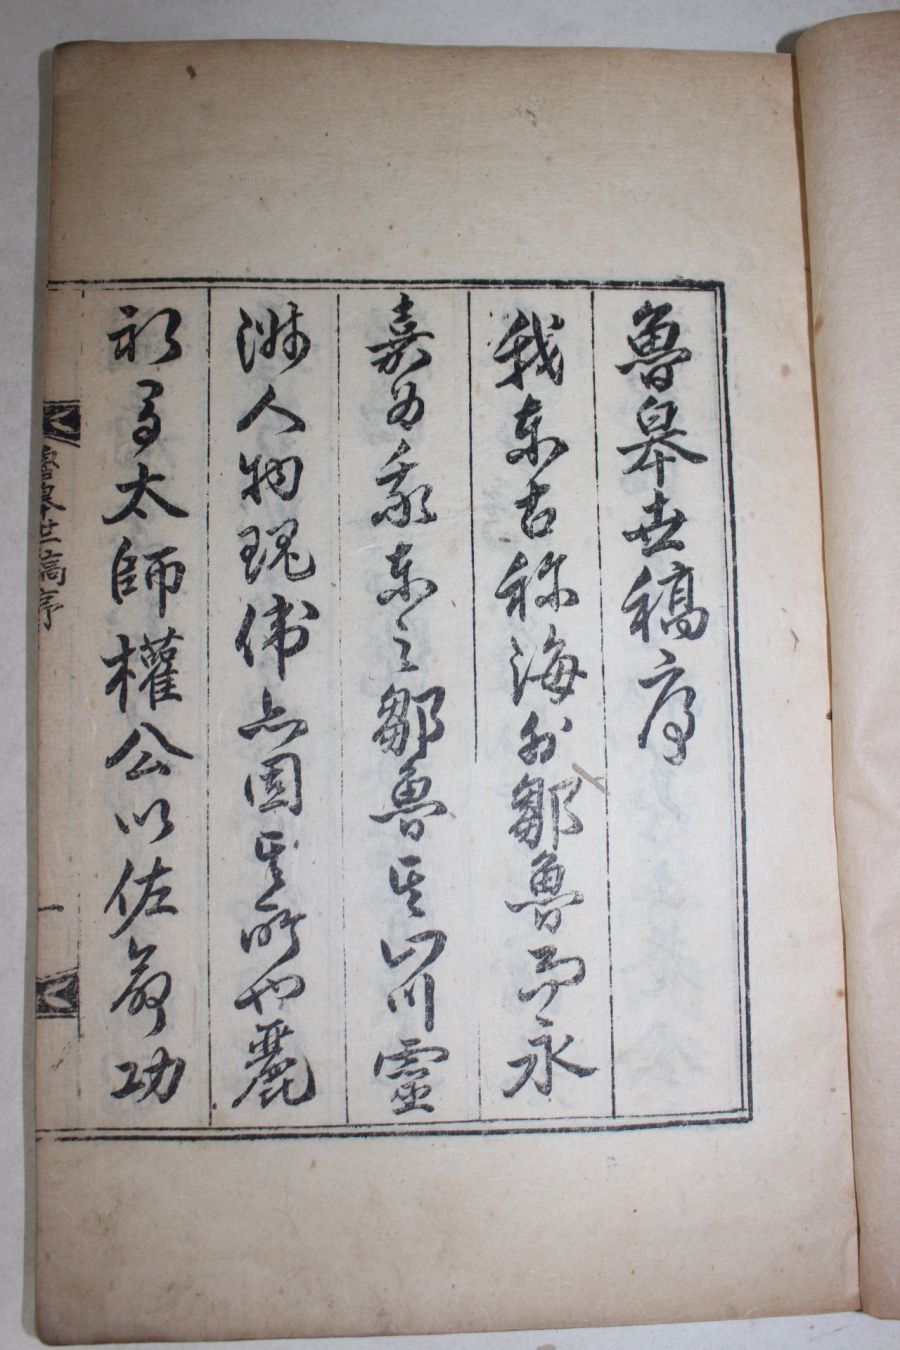 魯皐世稿序
我東古称海外鄒魯而永
嘉為我東之鄒魯其山川靈
淑人物瑰偉亦固其所也麗
初有太師權公以佐命功
魯皐世稿序
一